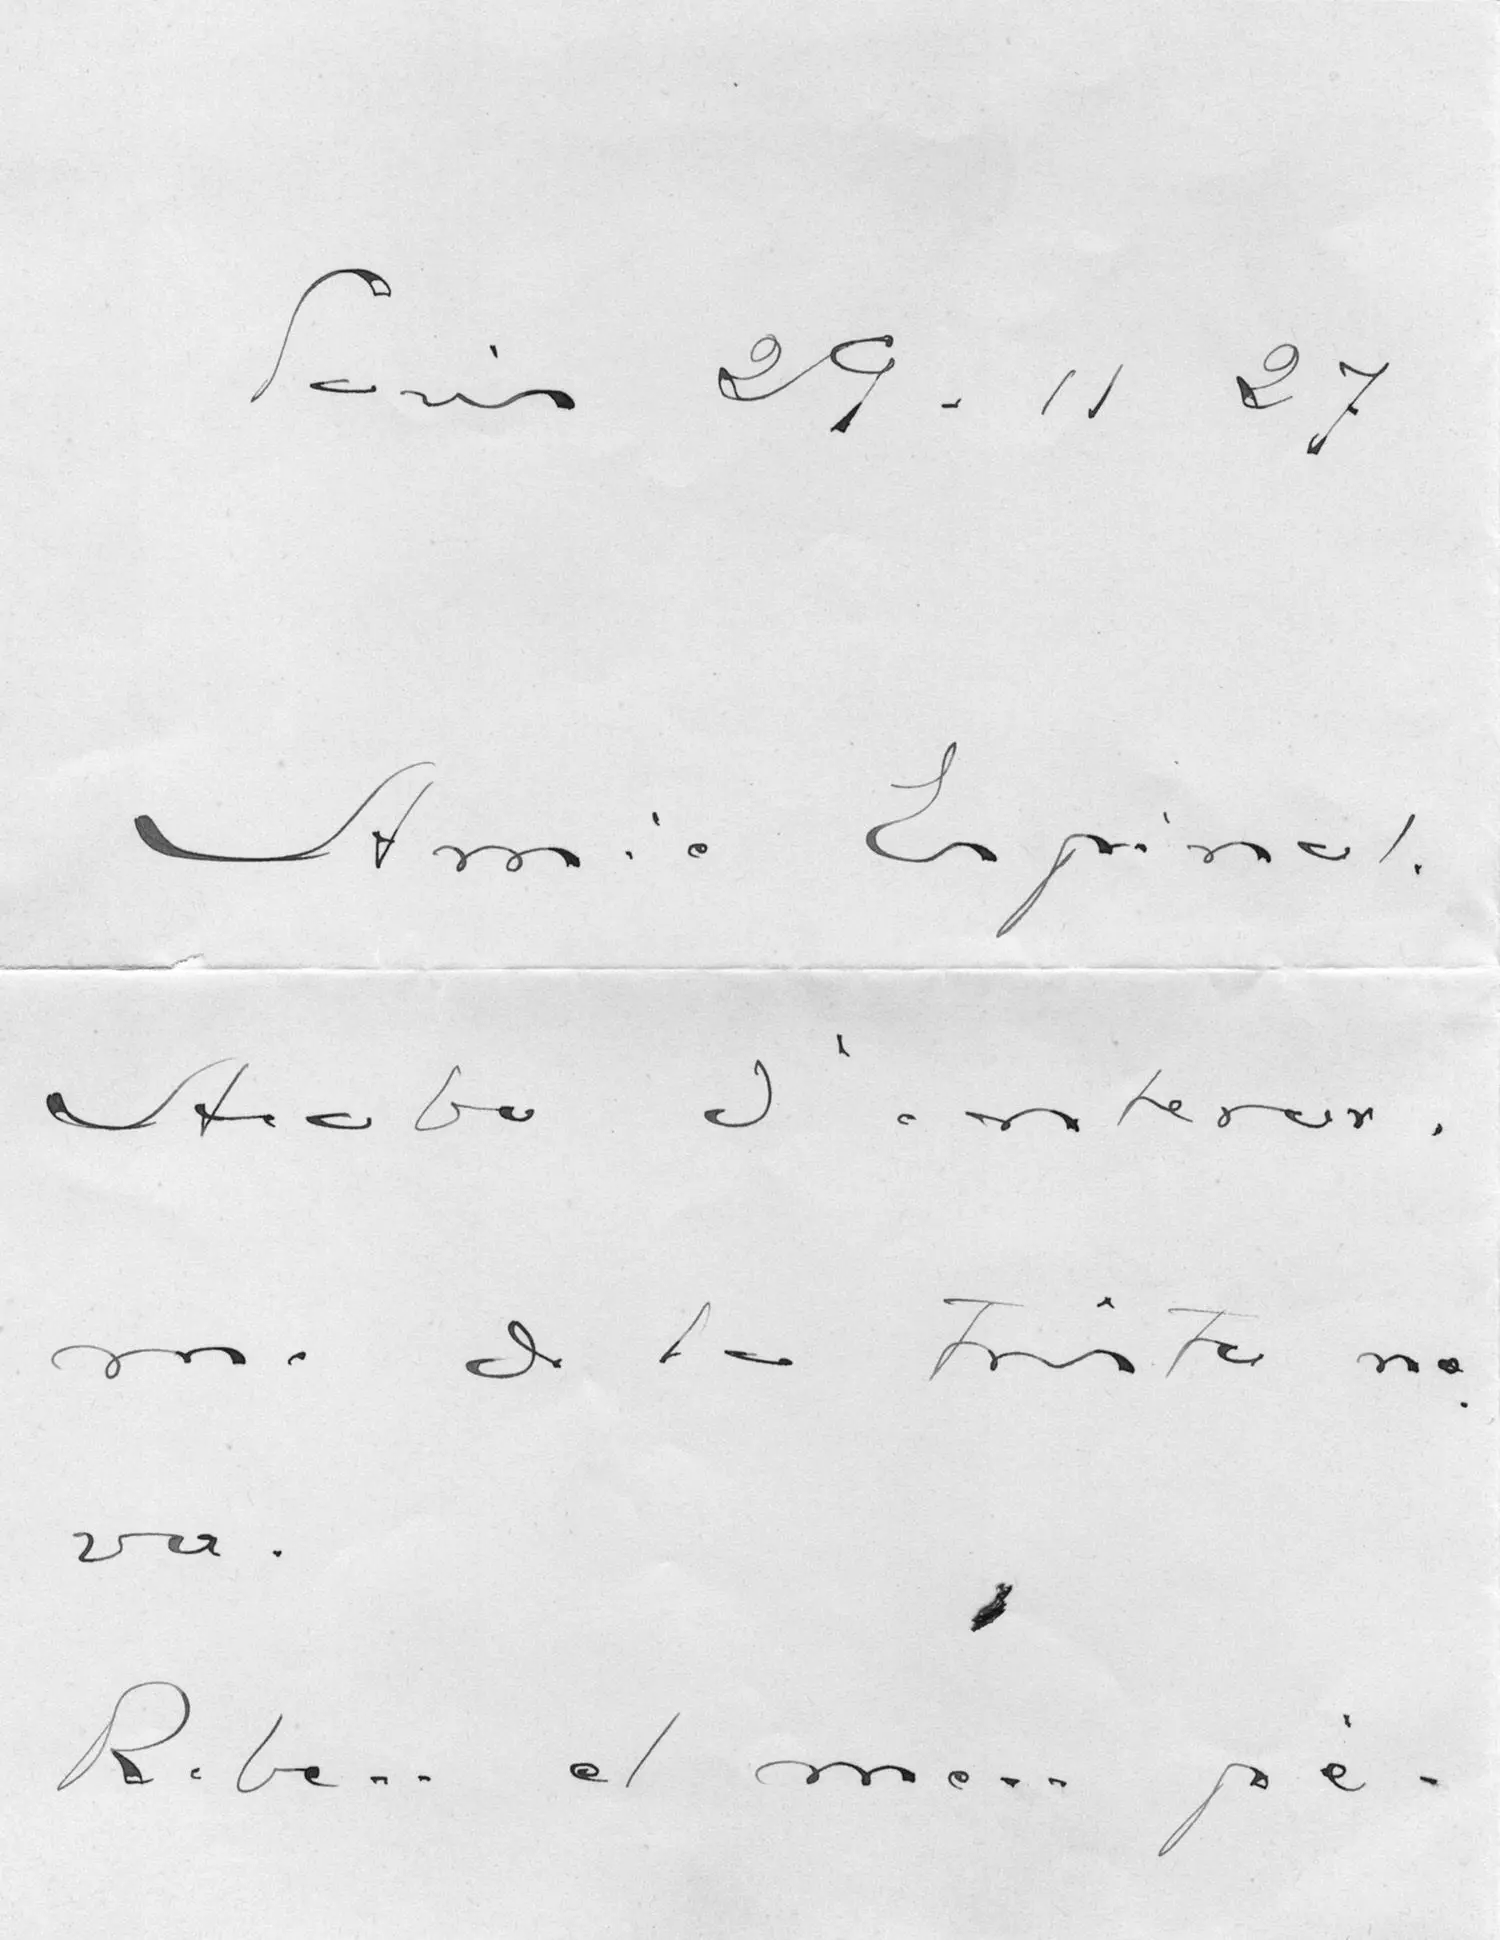 Paris 29-11 27
Amic Espinal.
Acabo d'enterar.
me de la trista no.
va.
Rebeu el meu pé-